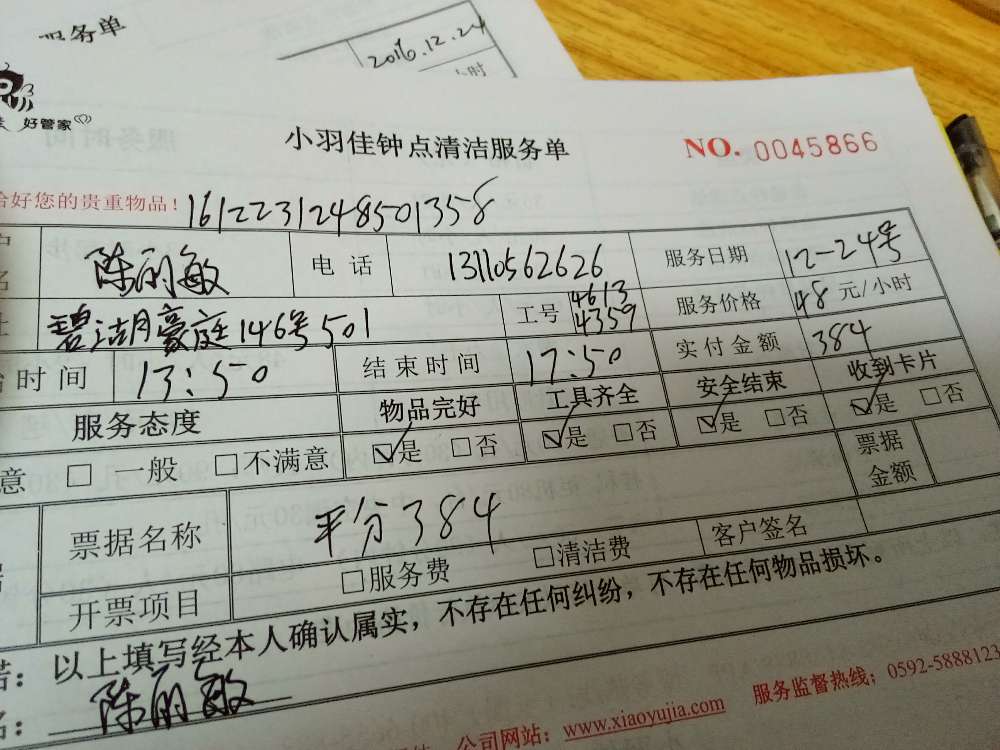 服务单
2016.12.24
小时
好管家
小羽佳钟点清洁服务单 NO. 0045866
恰好您的贵重物品! 1612231248501358
陈丽敏 电话 13110562626 服务日期 12-24号
碧湖豪庭146号501 工号 4613 4359 服务价格 48 元/小时
时间 13:50 结束时间 17:50 实付金额 384
服务态度 物品完好 工具齐全 安全结束 收到卡片
意 □ 一般 □不满意 ☑是 □否 ☑是 □否 ☑是 □否 ☑是 □否
票据名称 平分384 票据金额
开票项目 □服务费 □清洁费 客户签名
诺: 以上填写经本人确认属实,不存在任何纠纷,不存在任何物品损坏。
名: 陈丽敏
公司网站: www.xiaoyujia.com 服务监督热线: 0592-5888123